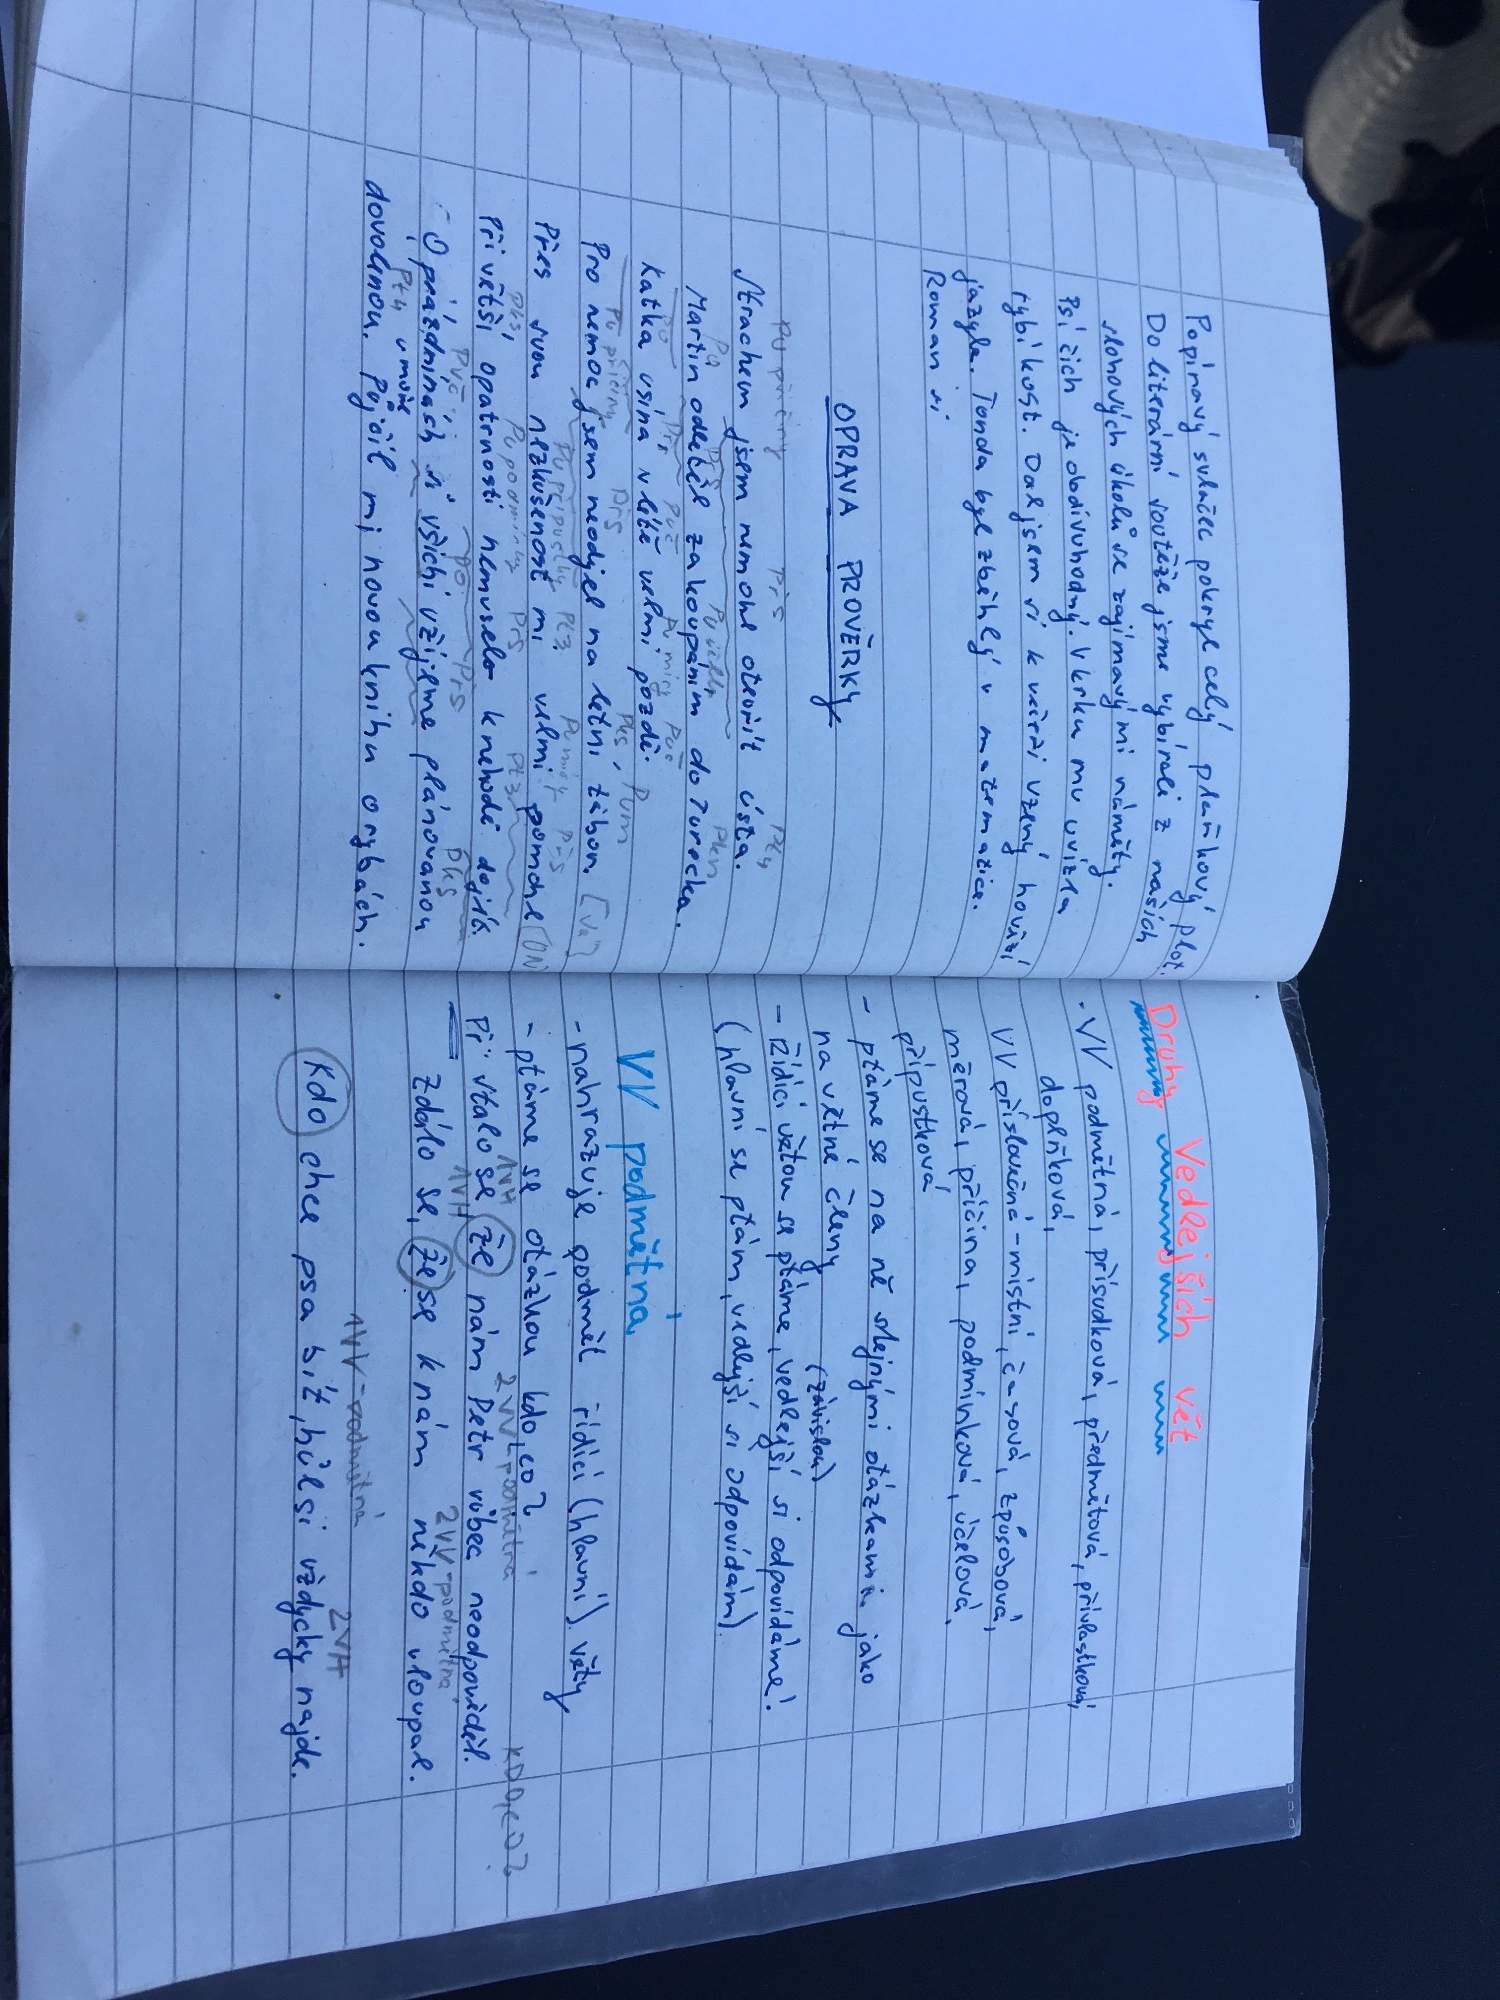 Popínavý svlačec pokryl celý plaňkový plot.
Do literární soutěže jsme vybírali z našich
slohových úkolů se zajímavými náměty.
Psí čich je obdivuhodný. V krku mu uvízla
rybí kost. Dal jsem si k večeři vzený hovězí
jazyk. Tonda byl zběhlý v matematice.
Roman si
OPRAVA PROVĚRKY
Pu příčiny Přs Pt4
Strachem jsem nemohl otevřít ústa.
Po Přs Pu účelu Pkn
Martin odletěl za koupáním do Turecka.
Po Přs Puč Pu míry Puč
Katka usíná v létě velmi pozdě.
Pu příčiny Přs Pks, Pum
Pro nemoc jsem neodjel na letní tábor. [Va]
Pu přípustky Pt3 Pu míry Přs
Přes svou nezkušenost mi velmi pomohl [ON
Pks, Pu podmínky Přs Pt3
Při větší opatrnosti nemuselo k nehodě dojít.
Puč Po Přs Pks
O prázdninách si všichni užijeme plánovanou
Pt4 u moře
dovolenou. Půjčil mi novou knihu o rybách.
Druhy Vedlejších vět
· VV podmětná, přísudková, předmětová, přívlastková,
doplňková,
VV příslovečná - místní, časová, způsobová,
měrová, příčina, podmínková, účelová,
přípustková
- ptáme se na ně stejnými otázkami jako
na větné členy (závislou)
- Řídící větou se ptáme, vedlejší si odpovídáme!
(hlavní se ptám, vedlejší si odpovídám).
VV podmětná
- nahrazuje podmět řídící (hlavní) věty
- ptáme se otázkou kdo, co?
1VH 2VV podmětná KDO, CO?
Př: Stalo se že nám Petr vůbec neodpověděl.
1VH 2VV-podmětná
Zdálo se, že se k nám někdo vloupal.
1VV-podmětná 2VH
Kdo chce psa bít, hůl si vždycky najde.